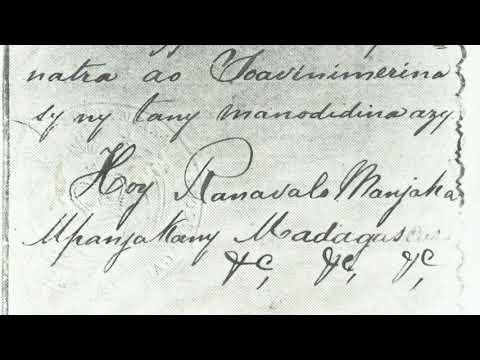 natra ao Soavinimerina
sy ny tany manodidina azy
Hoy Ranavalo Manjaka
Mpanjakany Madagascar
&c, &c, &c,